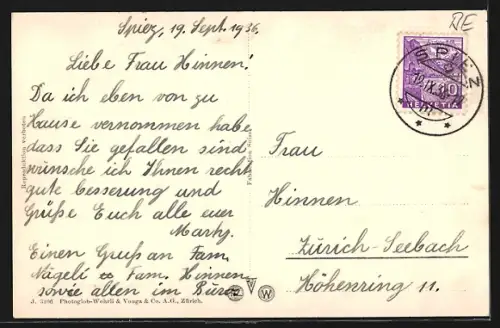 Spiez, 19. Sept. 1936.
RE
Liebe Frau Hinnen!
Da ich eben von zu
Hause vernommen habe,
dass Sie gefallen sind
wünsche ich Ihnen recht
gute besserung und
Grüße Euch alle euer
Einen Gruß an Fam.
Nägeli & Fam. Hinnen
sowie allen im Büro.
Reproduktion verboten
J. 3496 Photoglob-Wehrli & Vouga & Co. A.G., Zürich.
W
SPIEZ
19.IX.36
10
HELVETIA
Frau
Hinnen
Zürich-Seebach
Höhenring 11.